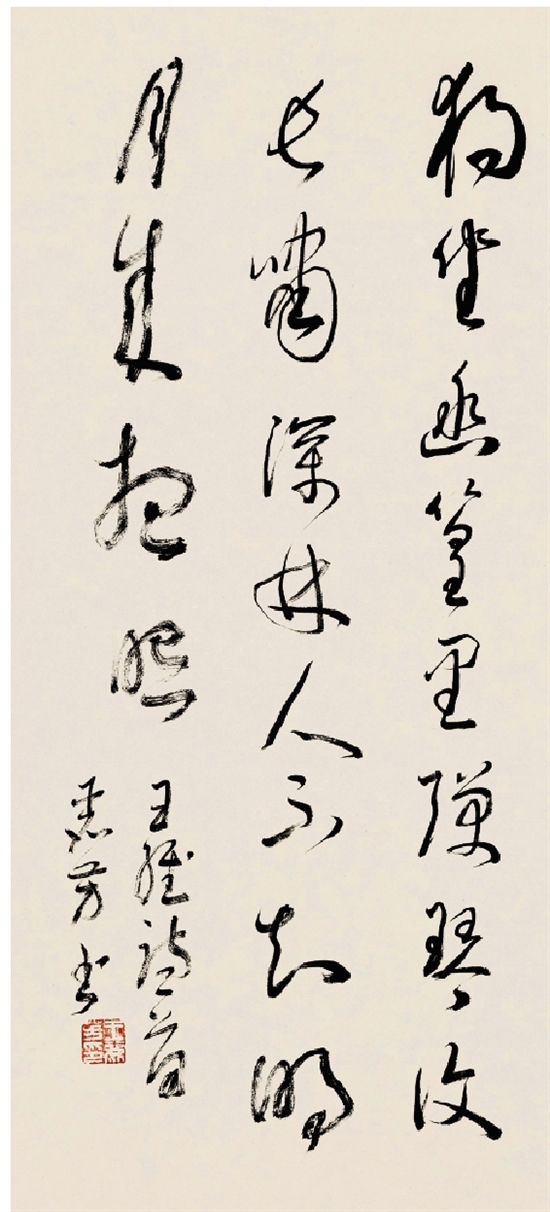 獨坐幽篁里彈琴復
長嘯深林人不知明
月來相照
王維詩一首
芳書